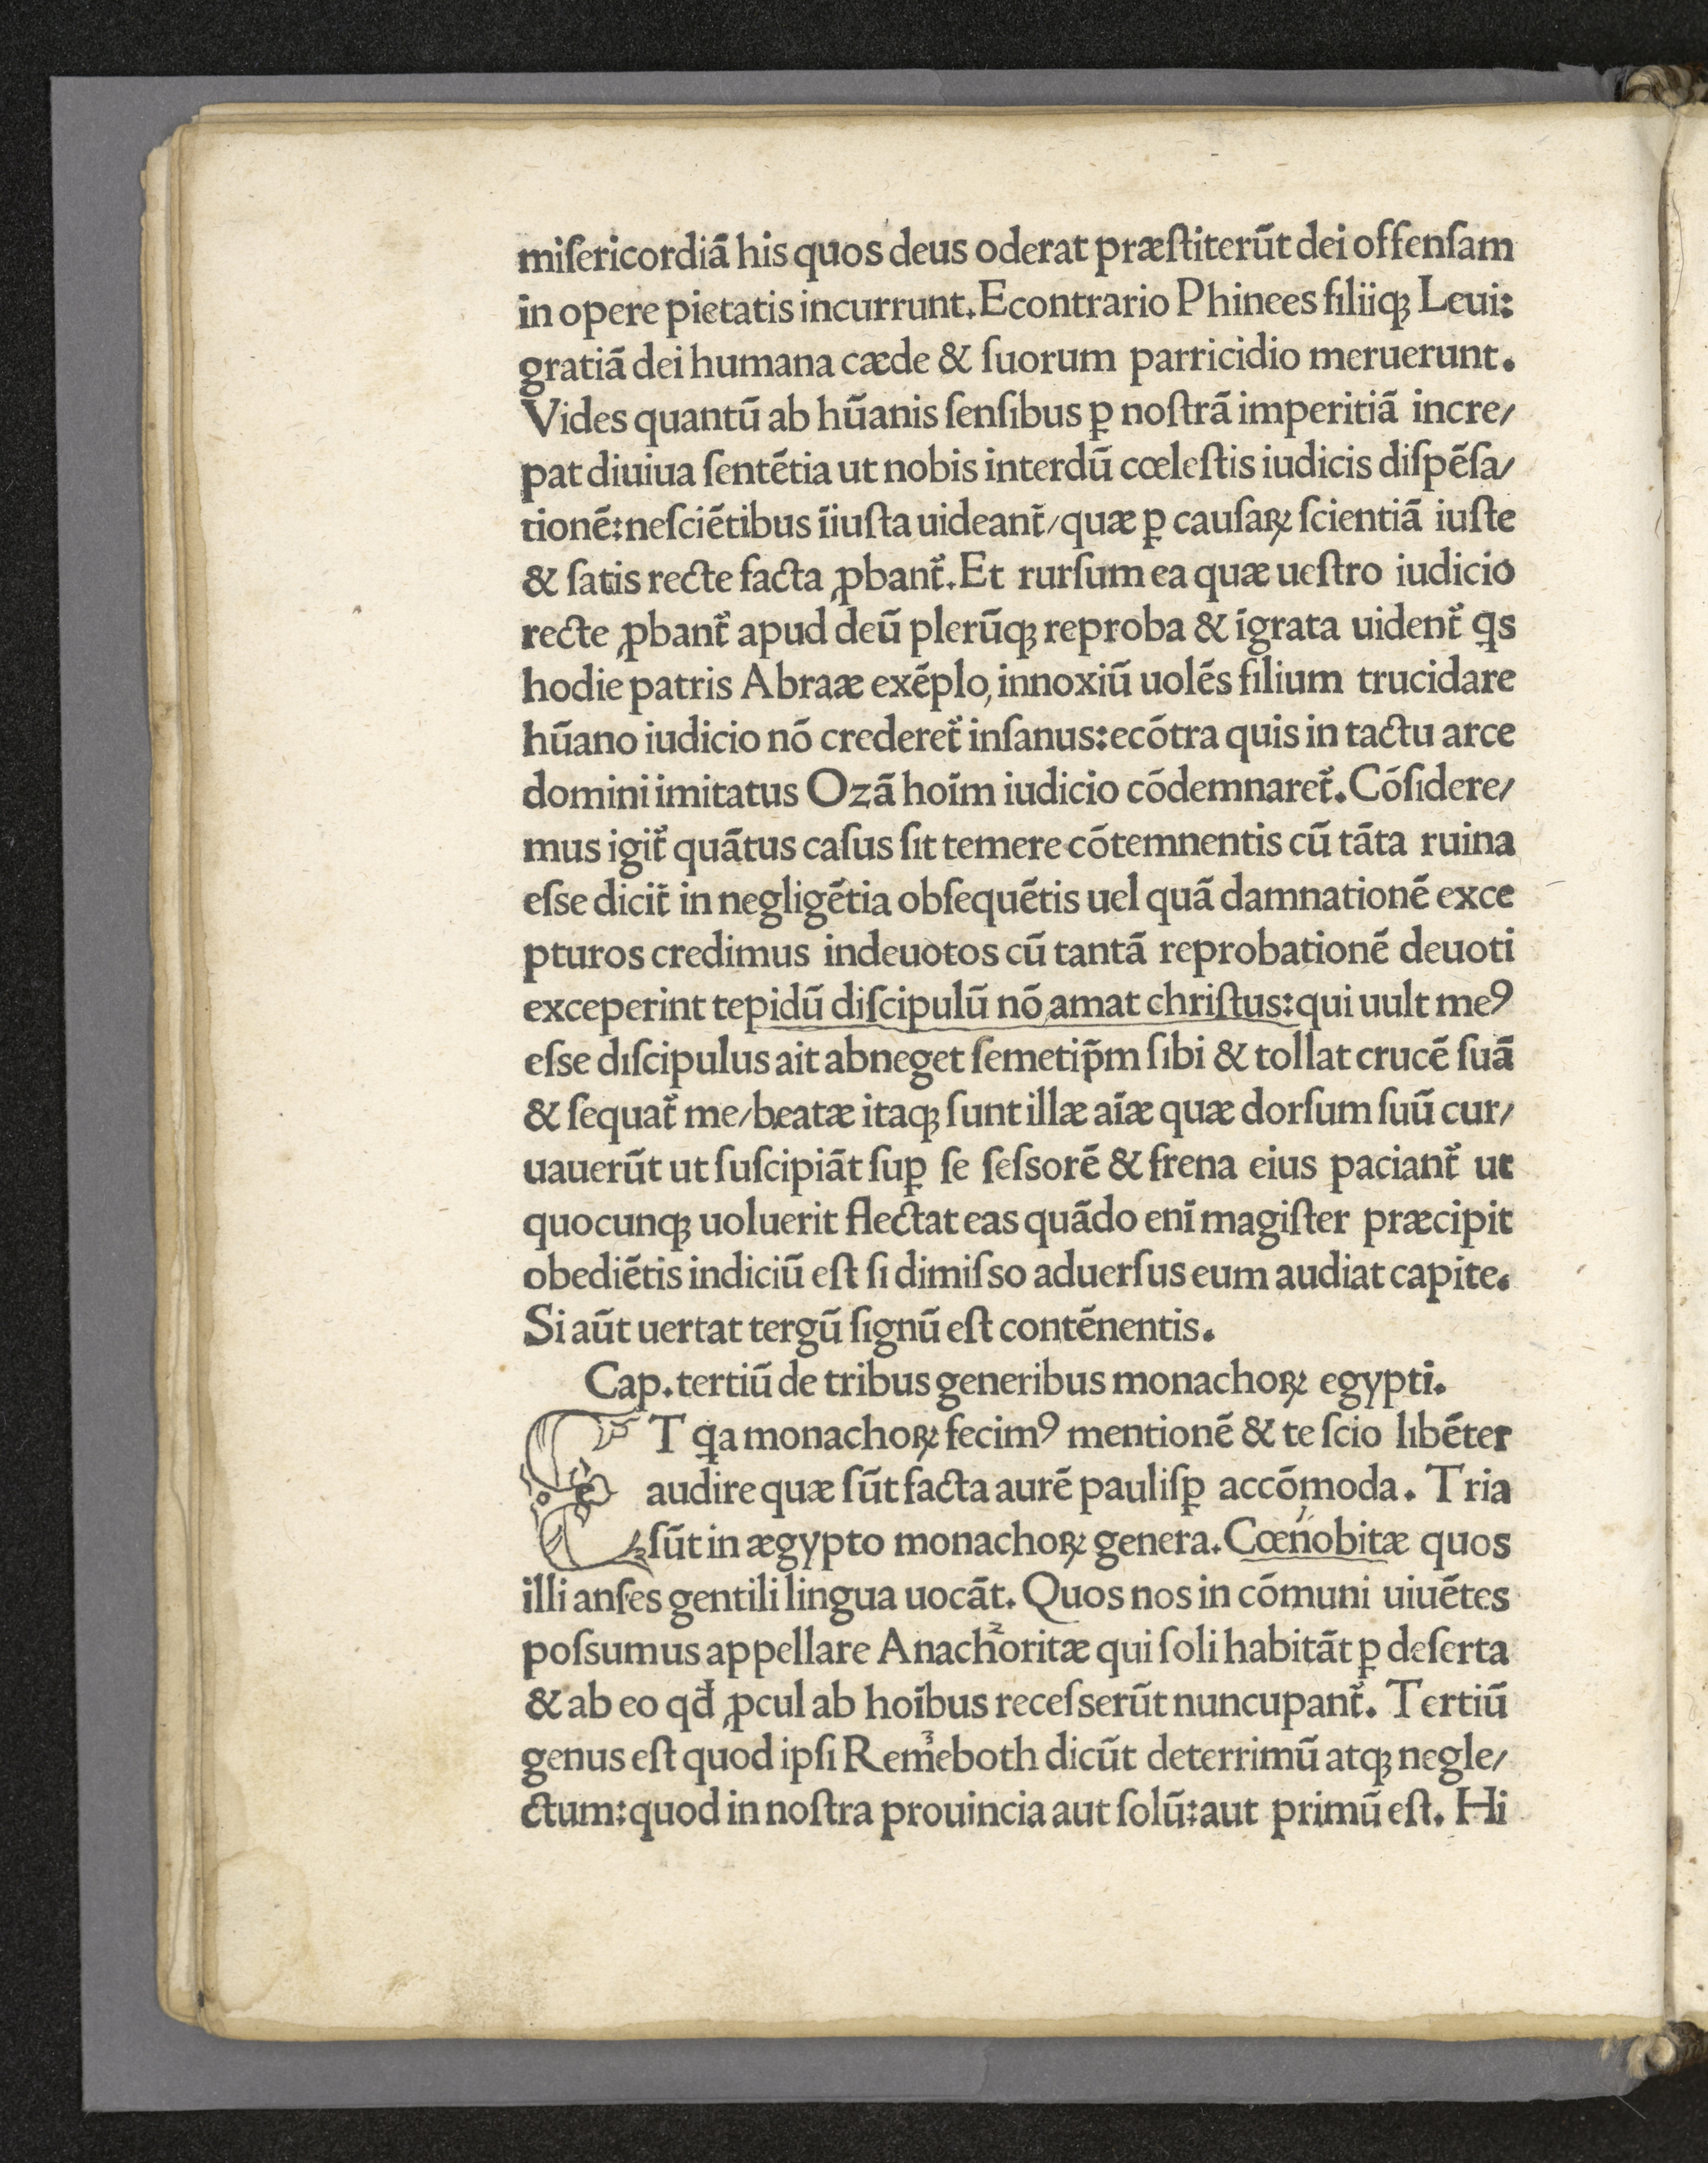 miſericordiā his quos deus oderat præſtiterūt dei offenſam
in opere pietatis incurrunt. Econtrario Phinees filiiqꝫ Leui:
gratiā dei humana cæde & ſuorum parricidio meruerunt.
Vides quantū ab hūanis ſenſibus ꝑ noſtrā imperitiā incre/
pat diuiua ſentētia ut nobis interdū cœleſtis iudicis diſpēſa/
tionē: neſciētibus īiuſta uideant᷑/quæ ꝑ cauſaꝝ ſcientiā iuſte
& ſatis recte facta ꝓbant᷑. Et rurſum ea quæ ueſtro iudicio
recte ꝓbant᷑ apud deū plerūqꝫ reproba & īgrata uident᷑ ꝗs
hodie patris Abraæ exēplo, innoxiū uolēs filium trucidare
hūano iudicio nō crederet᷑ inſanus: ecōtra quis in tactu arce
domini imitatus Ozā hoīm iudicio cōdemnaret᷑. Cōſidere/
mus igit᷑ quātus caſus ſit temere cōtemnentis cū tāta ruina
eſse dicit᷑ in negligētia obſequētis uel quā damnationē exce
pturos credimus indeuotos cū tantā reprobationē deuoti
exceperint tepidū diſcipulū nō amat chriſtus: qui uult meꝰ
eſse dıſcipulus ait abneget ſemetip̄m ſibi & tollat crucē ſuā
& ſequat᷑ me/beatæ itaqꝫ ſunt illæ aīæ quæ dorſum ſuū cur/
uauerūt ut ſuſcipiāt ſuꝑ ſe ſeſsorē & frena eius paciant᷑ ut
quocunqꝫ uoluerit flectat eas quādo enī magiſter præcipit
obediētis indiciū eſt ſi dimiſso aduerſus eum audiat capite.
Si aūt uertat tergū ſignū eſt contēnentis.
Cap. tertiū de tribus generibus monachoꝝ egypti.
ET ꝗa monachoꝝ fecimꝰ mentionē & te ſcio lıbēter
audire quæ ſūt facta aurē pauliſꝑ accōmoda. Tria
ſūt in ægypto monachoꝝ genera. Cœnobitæ quos
illi anſes gentili lingua uocāt. Quos nos in cōmuni uiuētes
poſsumus appellare Anachoritæ qui ſoli habitāt ꝑ deſerta
& ab eo qđ ꝓcul ab hoībus receſserūt nuncupant᷑. Tertiū
genus eſt quod ipſi Remeboth dicūt deterrimū atqꝫ negle/
ctum: quod in noſtra prouincia aut ſolū: aut primū eſt. Hi